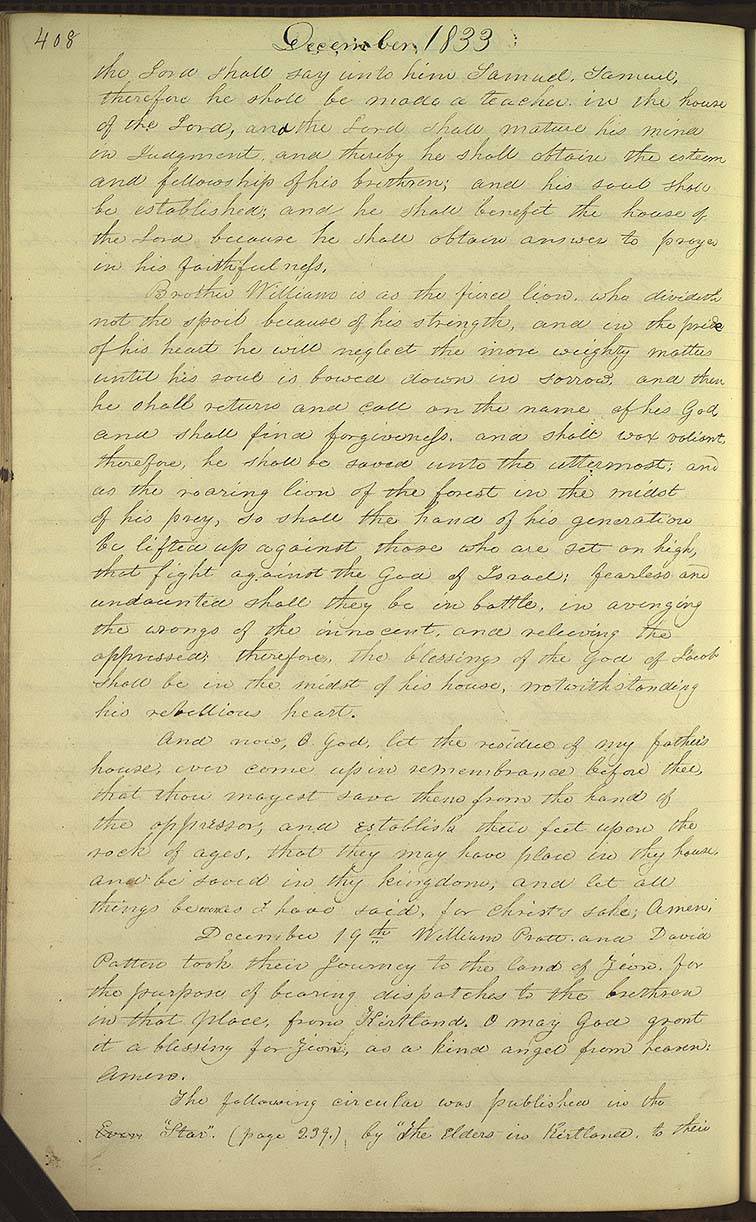 408 December, 1833
the Lord shall say unto him Samuel, Samuel,
therefore he shall be made a teacher in the house
of the Lord, and the Lord shall mature his mind
in Judgment, and thereby he shall obtain the esteem
and fellowship of his brethren; and his soul shall
be established; and he shall benefit the house of
the Lord because he shall obtain answer to prayer
in his faithfulness.
Brother William is as the fierce lion, who divideth
not the spoil because of his strength, and in the pride
of his heart he will neglect the more weighty matters
until his soul is bowed down in sorrow, and then
he shall return and call on the name of his God
and shall find forgiveness, and shall wax valiant,
therefore, he shall be saved unto the uttermost; and
as the roaring lion of the forest in the midst
of his prey, so shall the hand of his generation
be lifted up against those who are set on high,
that fight against the God of Israel; fearless and
undaunted shall they be in battle, in avenging
the wrongs of the innocent, and relieving the
oppressed; therefore, the blessings of the God of Jacob
shall be in the midst of his house, notwithstanding
his rebellious heart.
And now, O God, let the residue of my father's
house, ever come up in remembrance before thee,
that thou mayest save them from the hand of
the oppressor, and establish their feet upon the
rock of ages, that they may have place in thy house,
and be saved in thy kingdom, and let all
things be as I have said, for Christ's sake; Amen.
December 19th William Pratt and David
Patten took their Journey to the land of Zion, for
the purpose of bearing dispatches to the brethren
in that place, from Kirtland. O may God grant
it a blessing for Zion, as a kind angel from heaven:
Amen.
The following circular was published in the
Even "Star". (page 239.), by "The Elders in Kirtland, to their